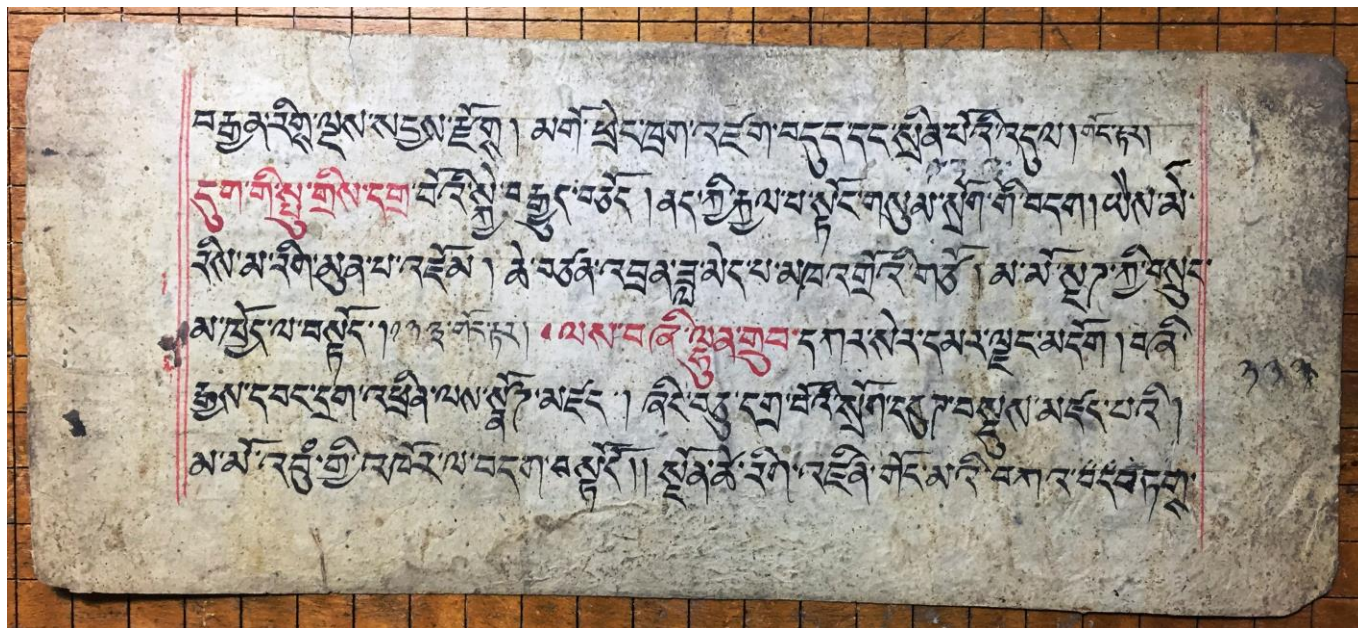 བརྒྱན་རིགྀ་ལྷས་སྦྲས་རྫོགྶ། མགོ་ཕྲེང་ཁྲག་འཛག་བདུད་དང་སྲིན་པོའི་འདུལ། གོང་ལྟར།
དུག་གི་སྤུ་གྲིས་དགྲ་བོའི་སྙིང་བརྒྱུད་བཅོད། ནད་ཀྱི་རྐྱལ་པ་སྟོང་གསུམ་སྲོག་གི་བདག། ཡེས་མེ་
རིས་མ་རིག་མུན་པ་འཇོམ། ཚེ་བཙན་འབྲན་ཟླ་མེད་པ་མཁའ་འགྲོའི་གཙོ། མ་མོ་སྔཊ་ཀྱི་བསྲུང་
མ་ཁྱོད་ལ་བསྟོད། གོང་ལྟར། ལས་བཞི་ལྷུན་གྲུབ་དཀར་སེར་དམར་ལྗང་མདོག། བཞི་
རྒྱས་དབང་དྲག་འཕྲིན་ལས་སྣཊ་མཛད། ཞིང་བཅུ་དགྲ་བོའི་སྲོག་དབུཊ་བསྡུས་མཛད་པའི།
མ་མོ་འབུྃ་གྱི་འཁོར་ལ་བདག་བསྟོདོ།། སྔོན་ཚེ་རིག་འཛིན་གོང་མའི་བཀའ་བད་བཏགྶ་